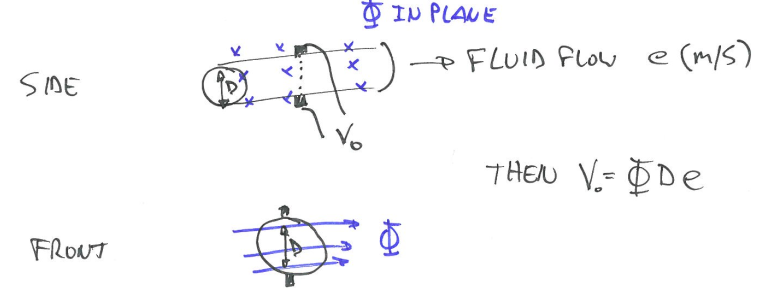 Φ IN PLANE
SIDE
D
→ FLUID FLOW e (m/s)
V₀
THEN V₀ = Φ D e
FRONT
D
Φ